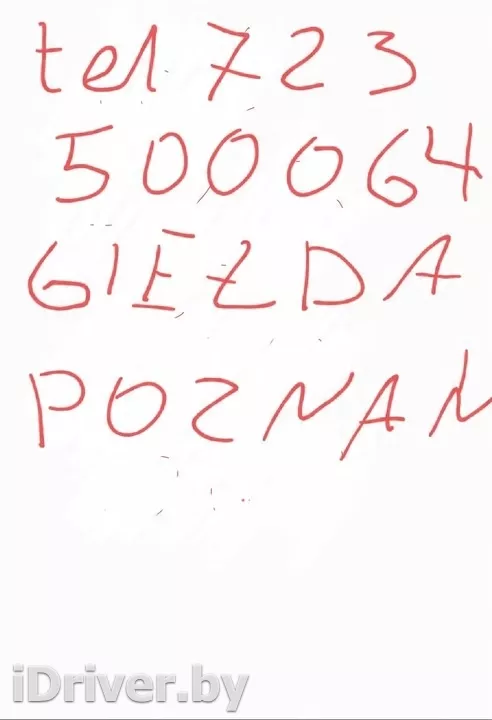 tel 723
500064
GIEŁDA
POZNAN
iDriver.by